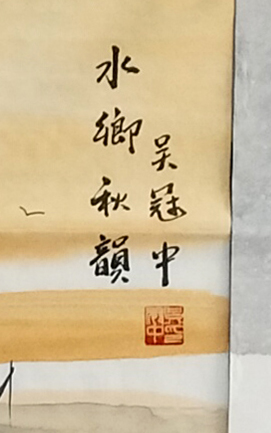 水鄉秋韻
吴冠中